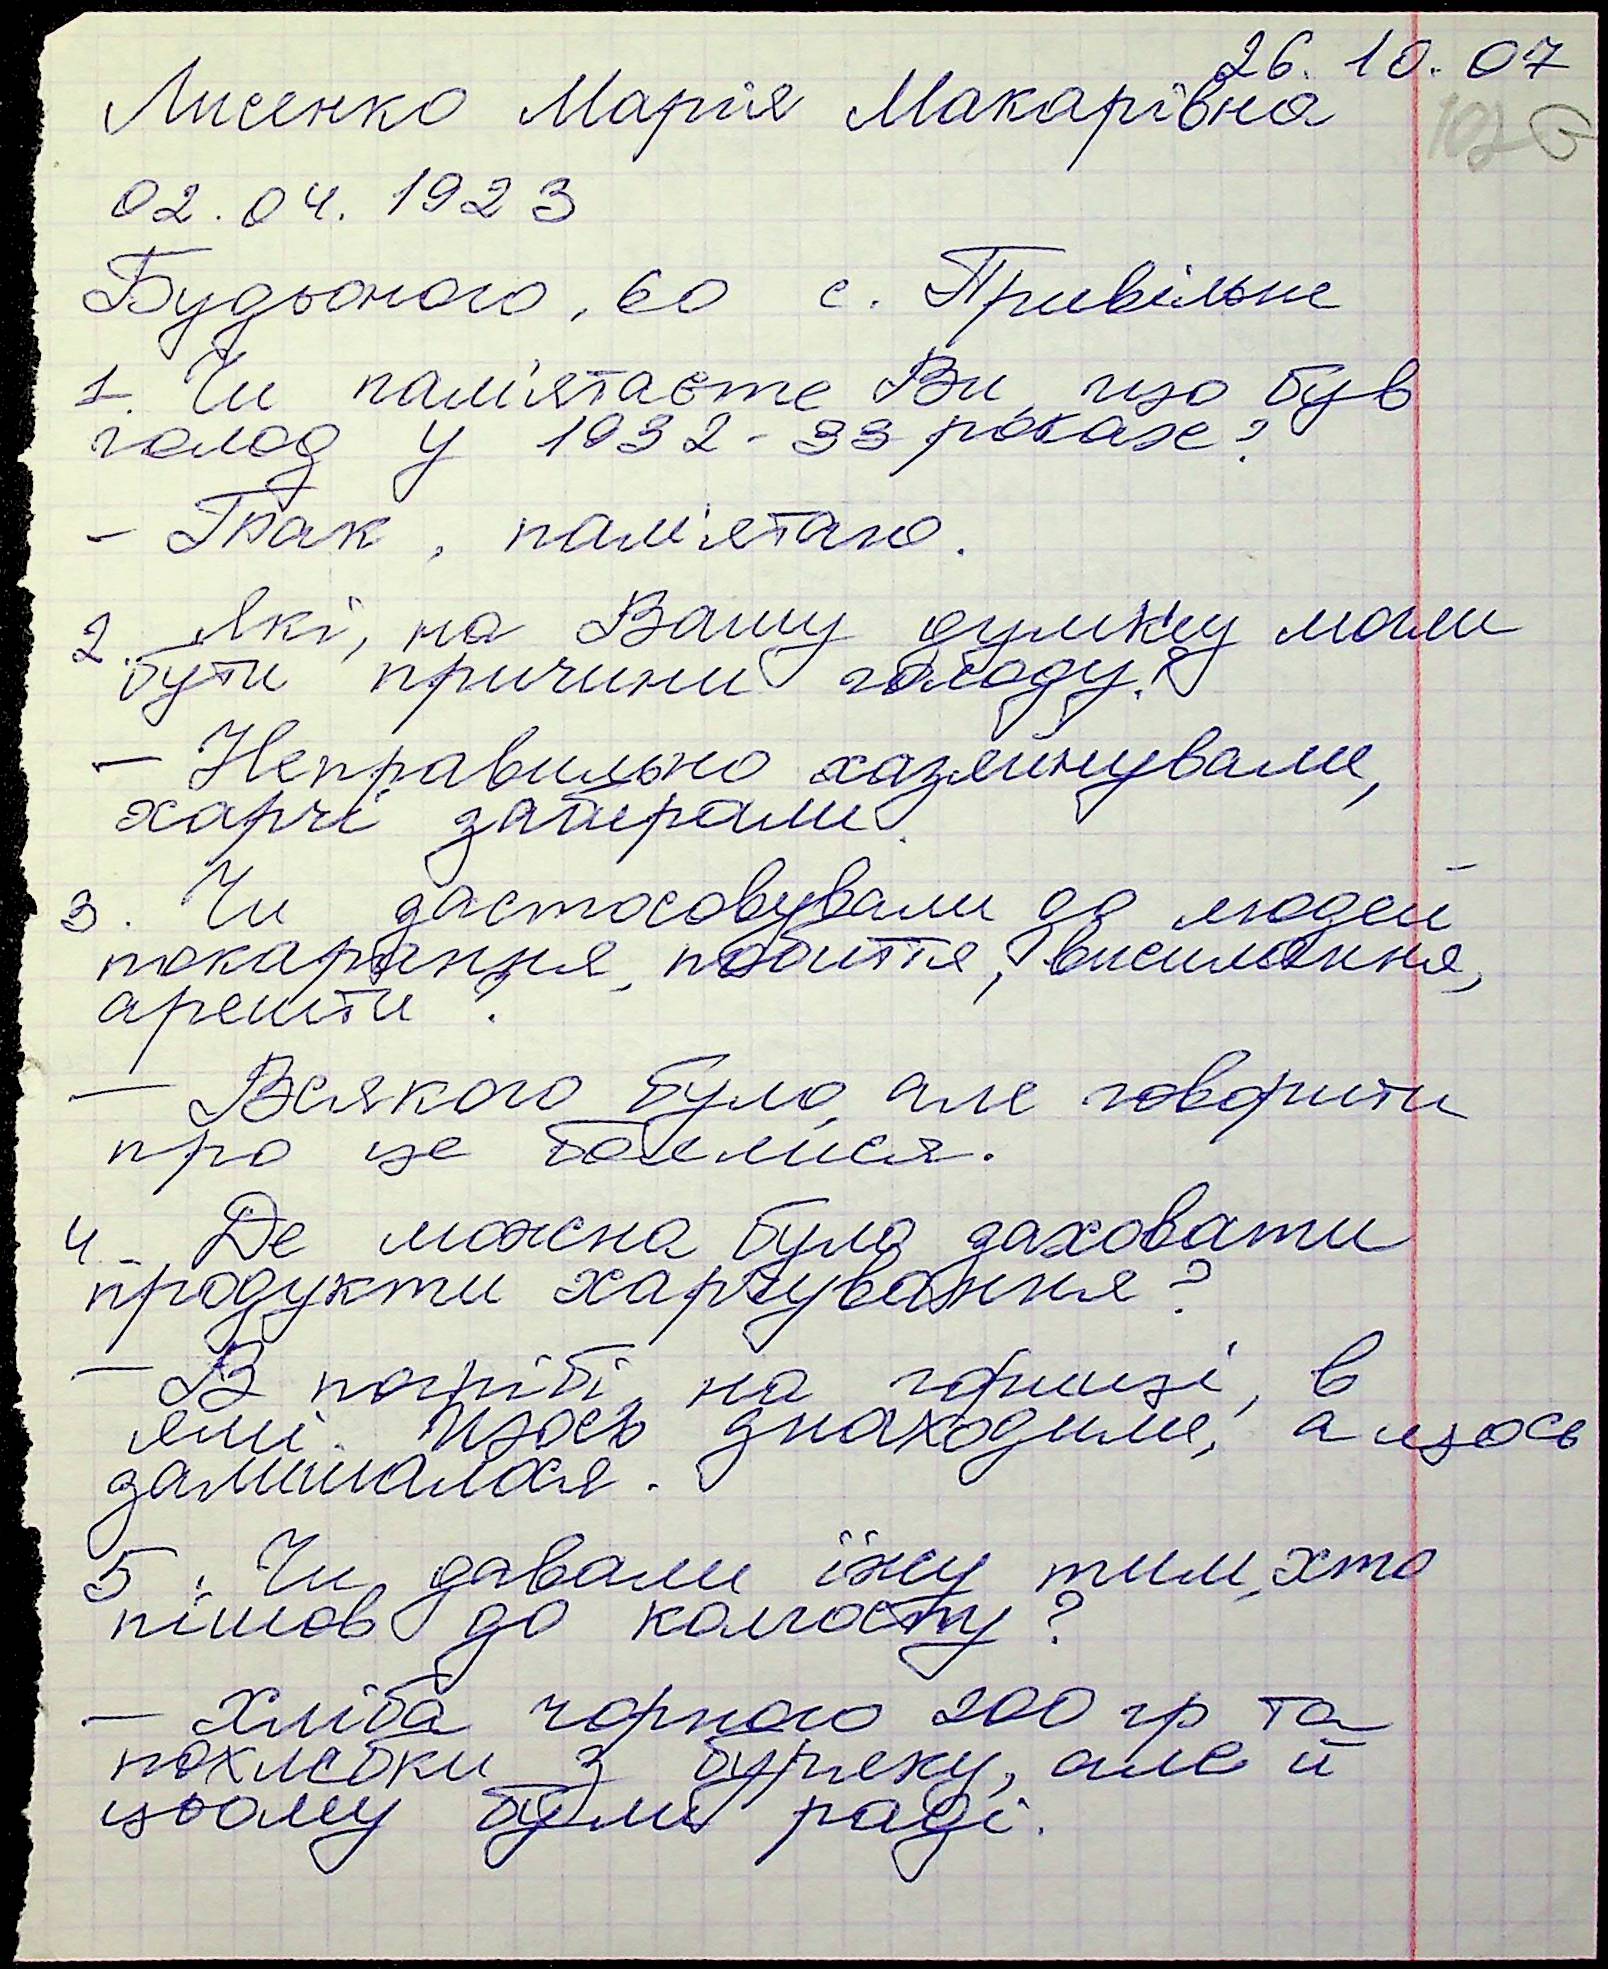 26.10.07
Лисенко Марія Макарівна
02.04.1923
Будьоного, 60 с. Привільне
1. Чи пам'ятаєте Ви, що був
голод у 1932-33 роках?
- Так, пам'ятаю.
2. Які, на Вашу думку могли
бути причини голоду?
- Неправильно хазяйнували,
харчі забирали.
3. Чи застосовували до людей
покарання, побиття, висилання,
арешти?
- Всякого було, але говорити
про це боялися.
4. Де можна було заховати
продукти харчування?
- В погрібі, на горищі, в
ямі. Щось знаходили, а щось
залишалося.
5. Чи давали їжу тим, хто
пішов до колгоспу?
- Хліба чорного 200 гр та
похлебки з буряку, але й
цьому були раді.